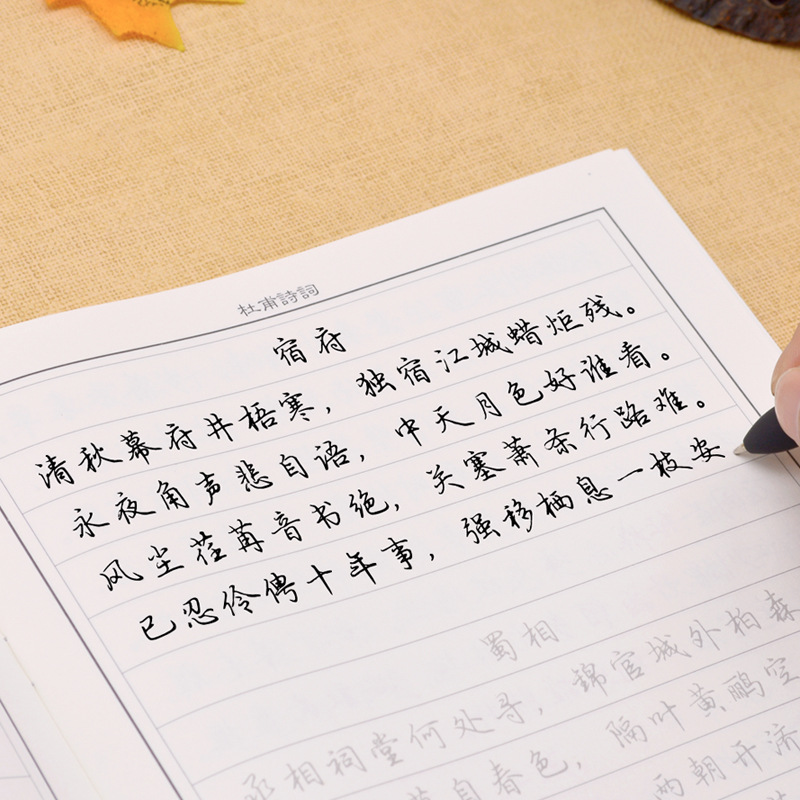 杜甫詩詞
宿府
清秋幕府井梧寒，独宿江城蜡炬残。
永夜角声悲自语，中天月色好谁看。
风尘荏苒音书绝，关塞萧条行路难。
已忍伶俜十年事，强移栖息一枝安
蜀相
丞相祠堂何处寻，锦官城外柏森
自春色，隔叶黄鹂空
两朝开济